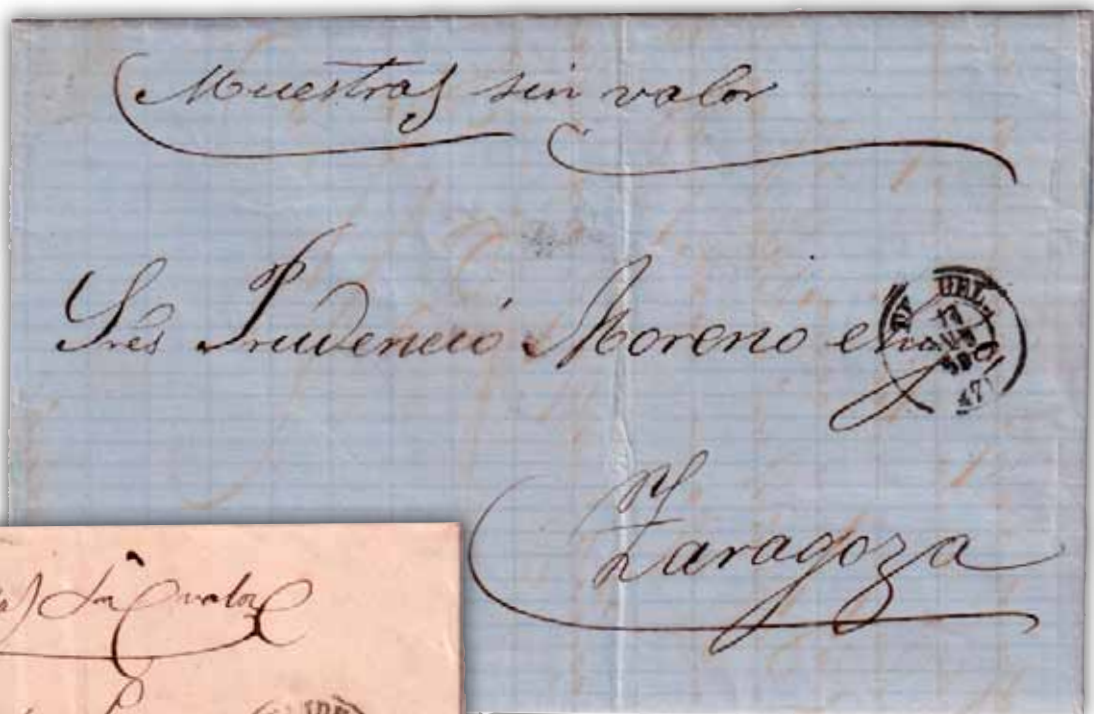 Muestras sin valor
Sres Prudencio Moreno e
Zaragoza
sin valor